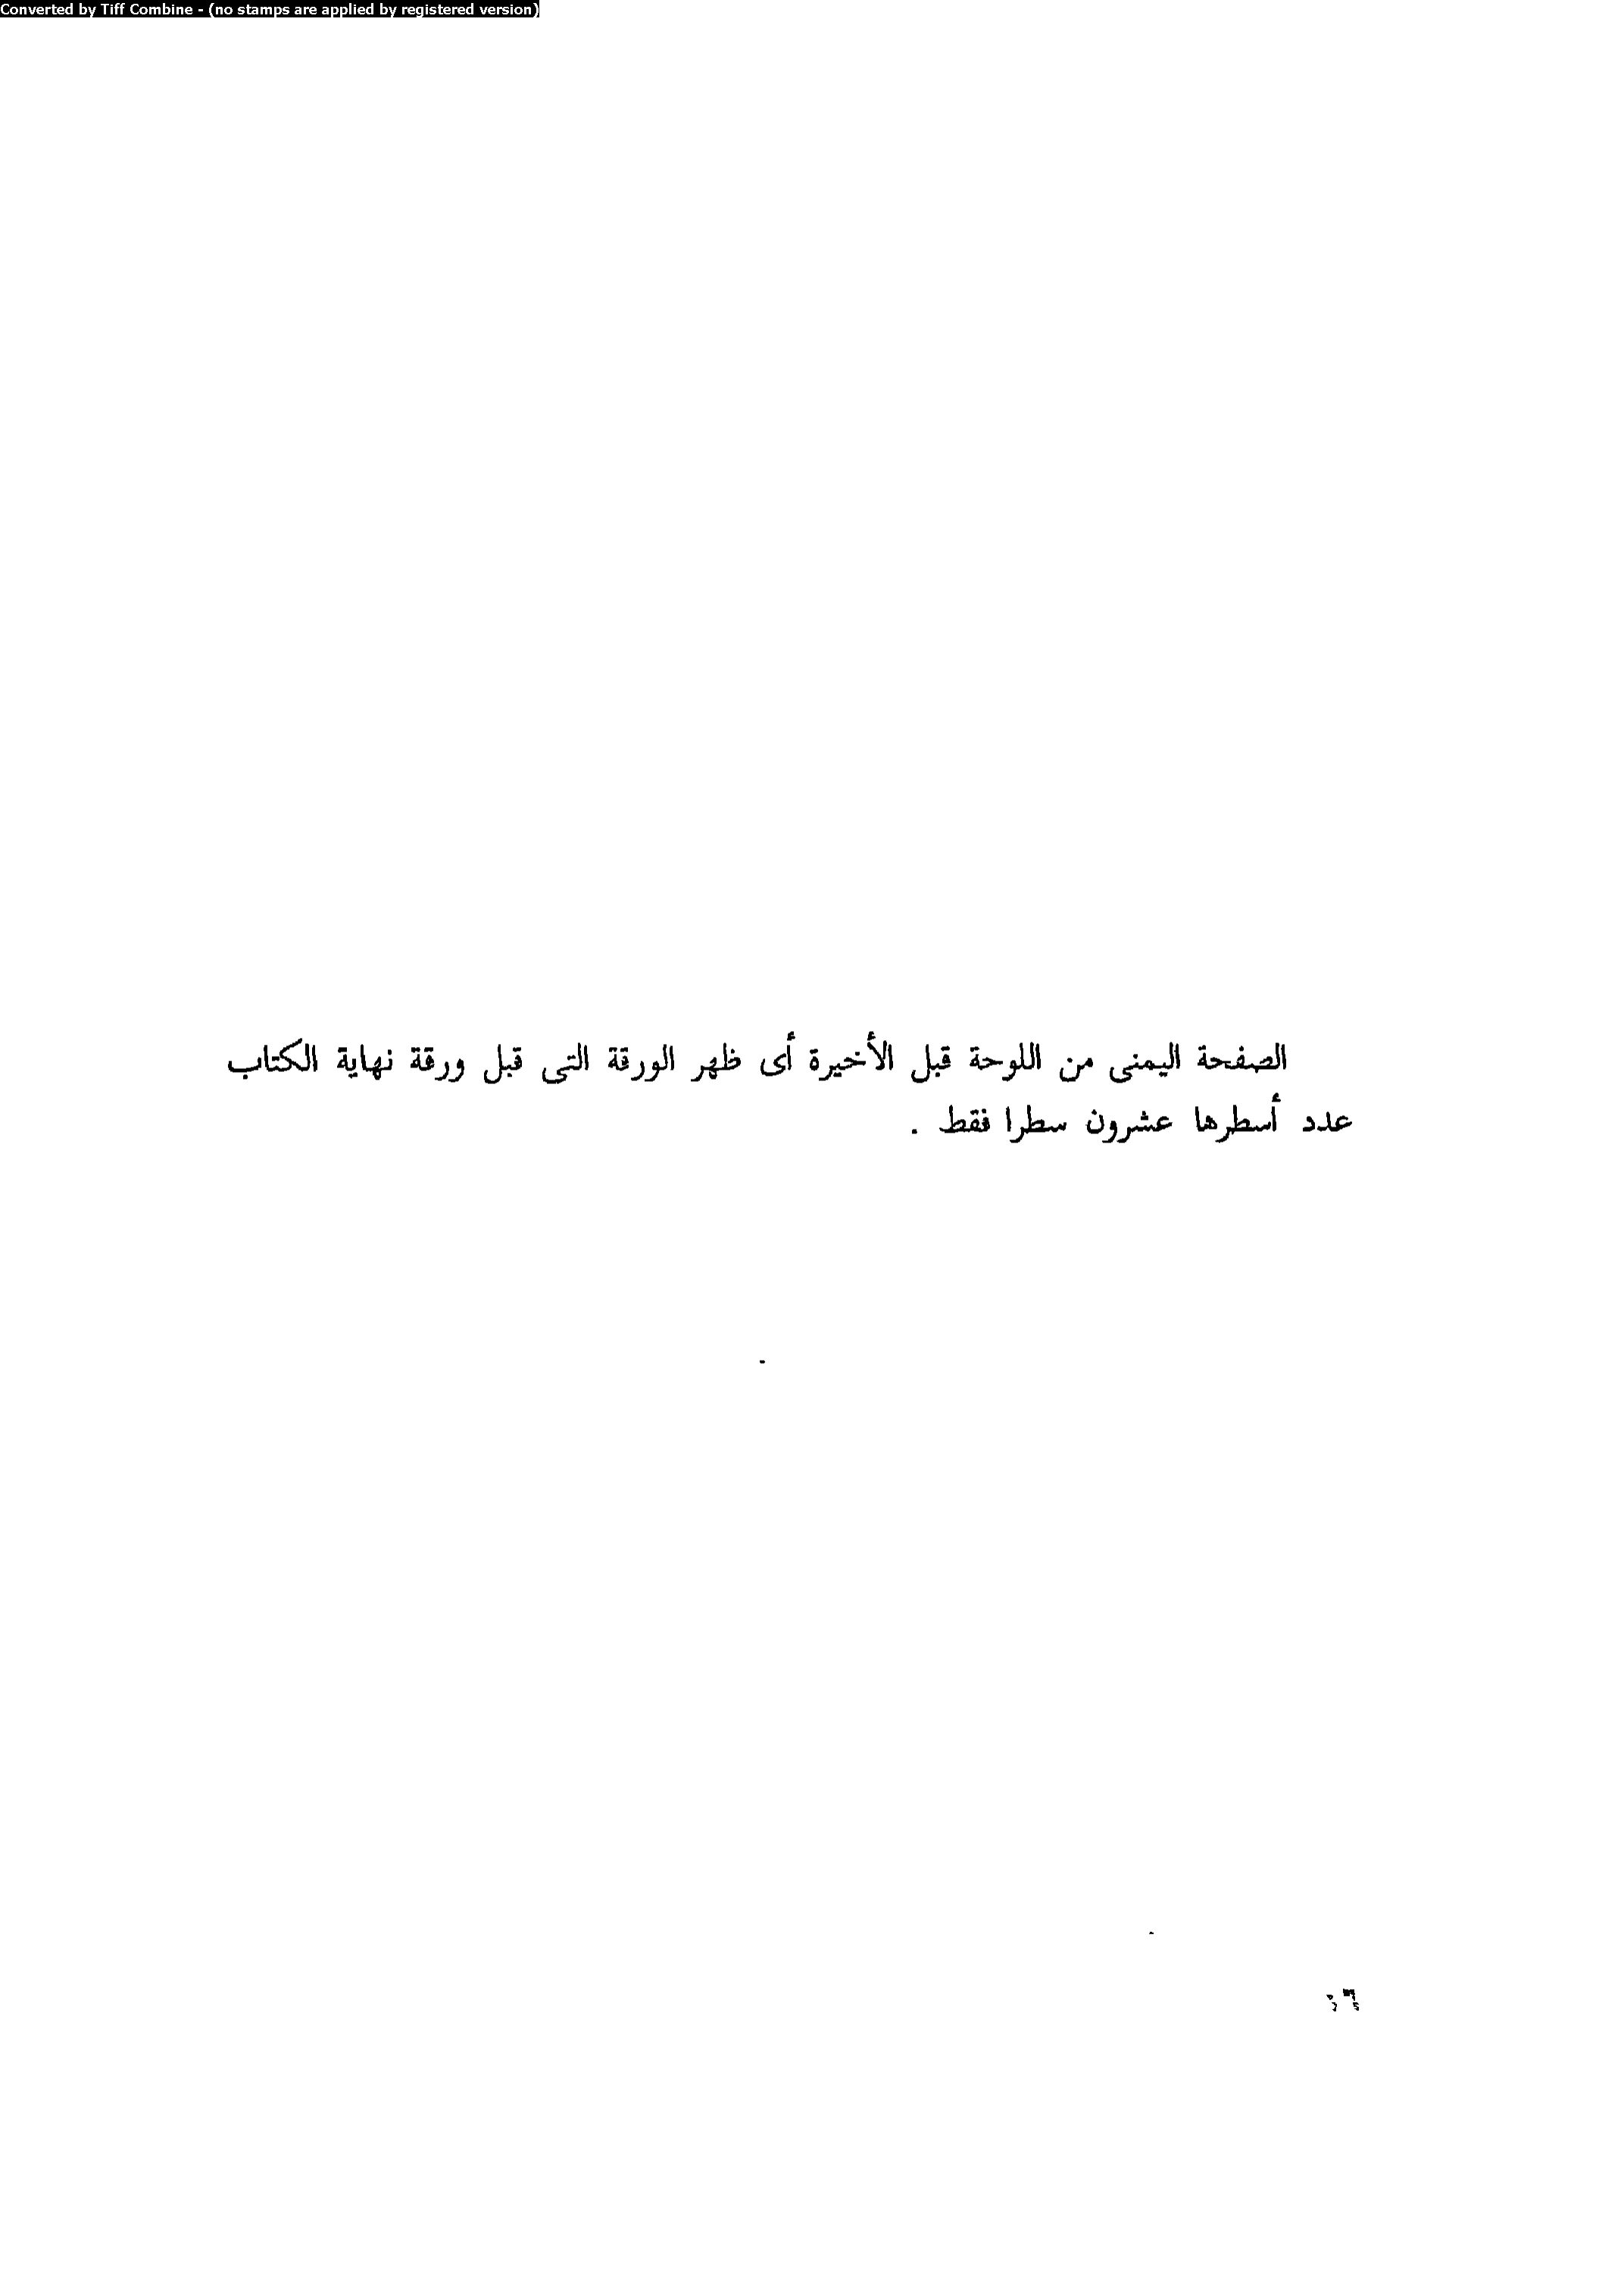 Converted by Tiff Combine - (no stamps are applied by registered version)
الصفحة اليمنى من اللوحة قبل الأخيرة أى ظهر الورقة التى قبل ورقة نهاية الكتاب
عدد أسطرها عشرون سطرا فقط .